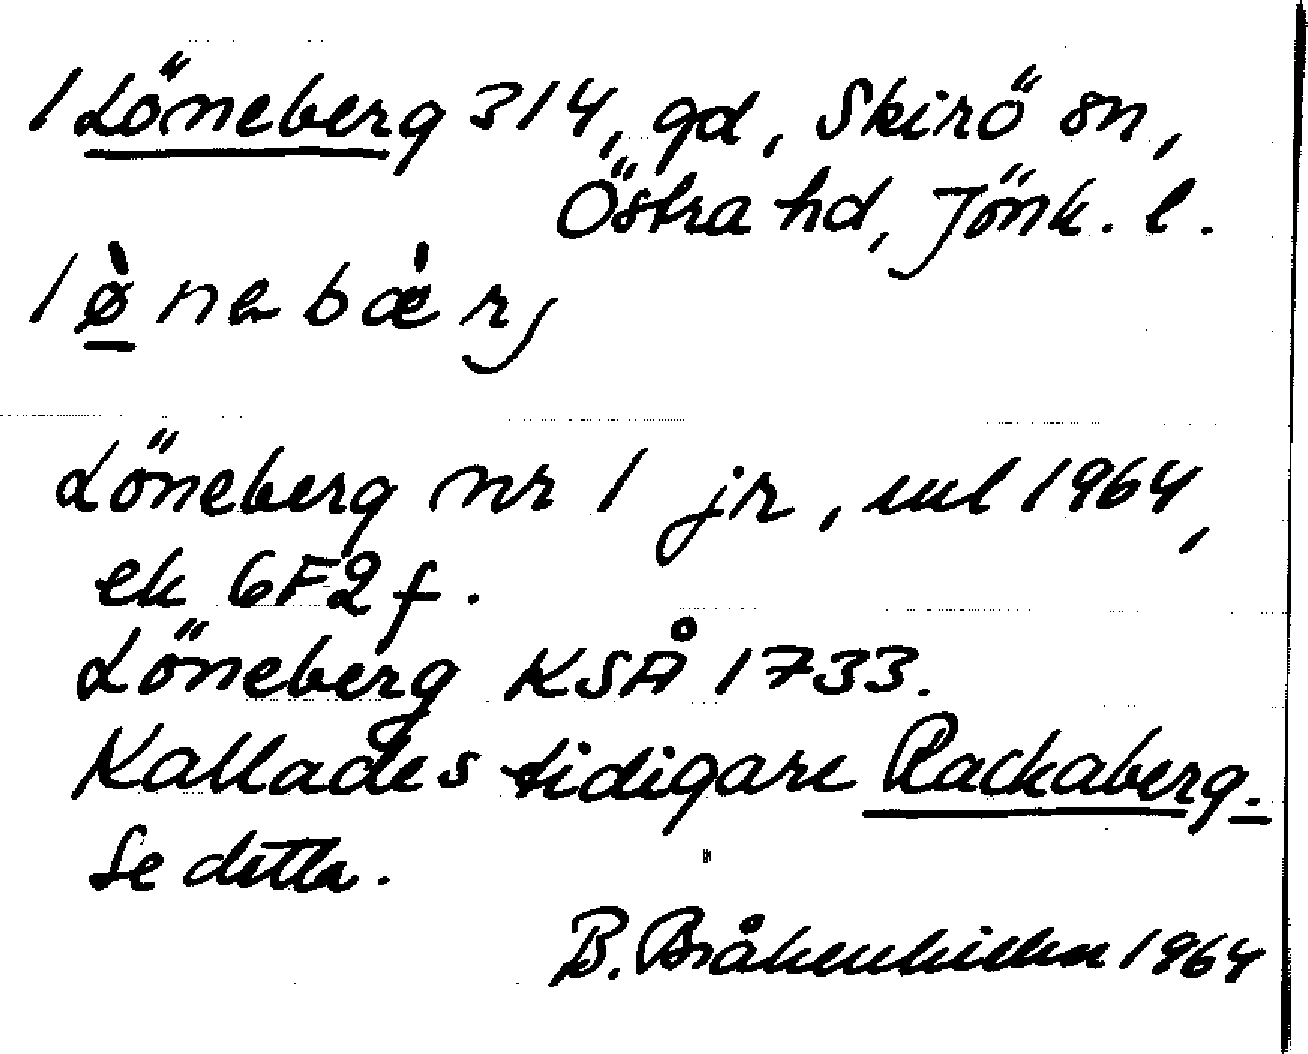 1 Löneberg 314, gd, Skirö sn,
Östra hd, Jönk. l.
lø̀nebæ̀rj
Löneberg nr 1 jr, uul 1964,
ek 6F2f.
Löneberg KSÅ 1733.
Kallades tidigare Rackaberg.
Se detta.
B. 1964